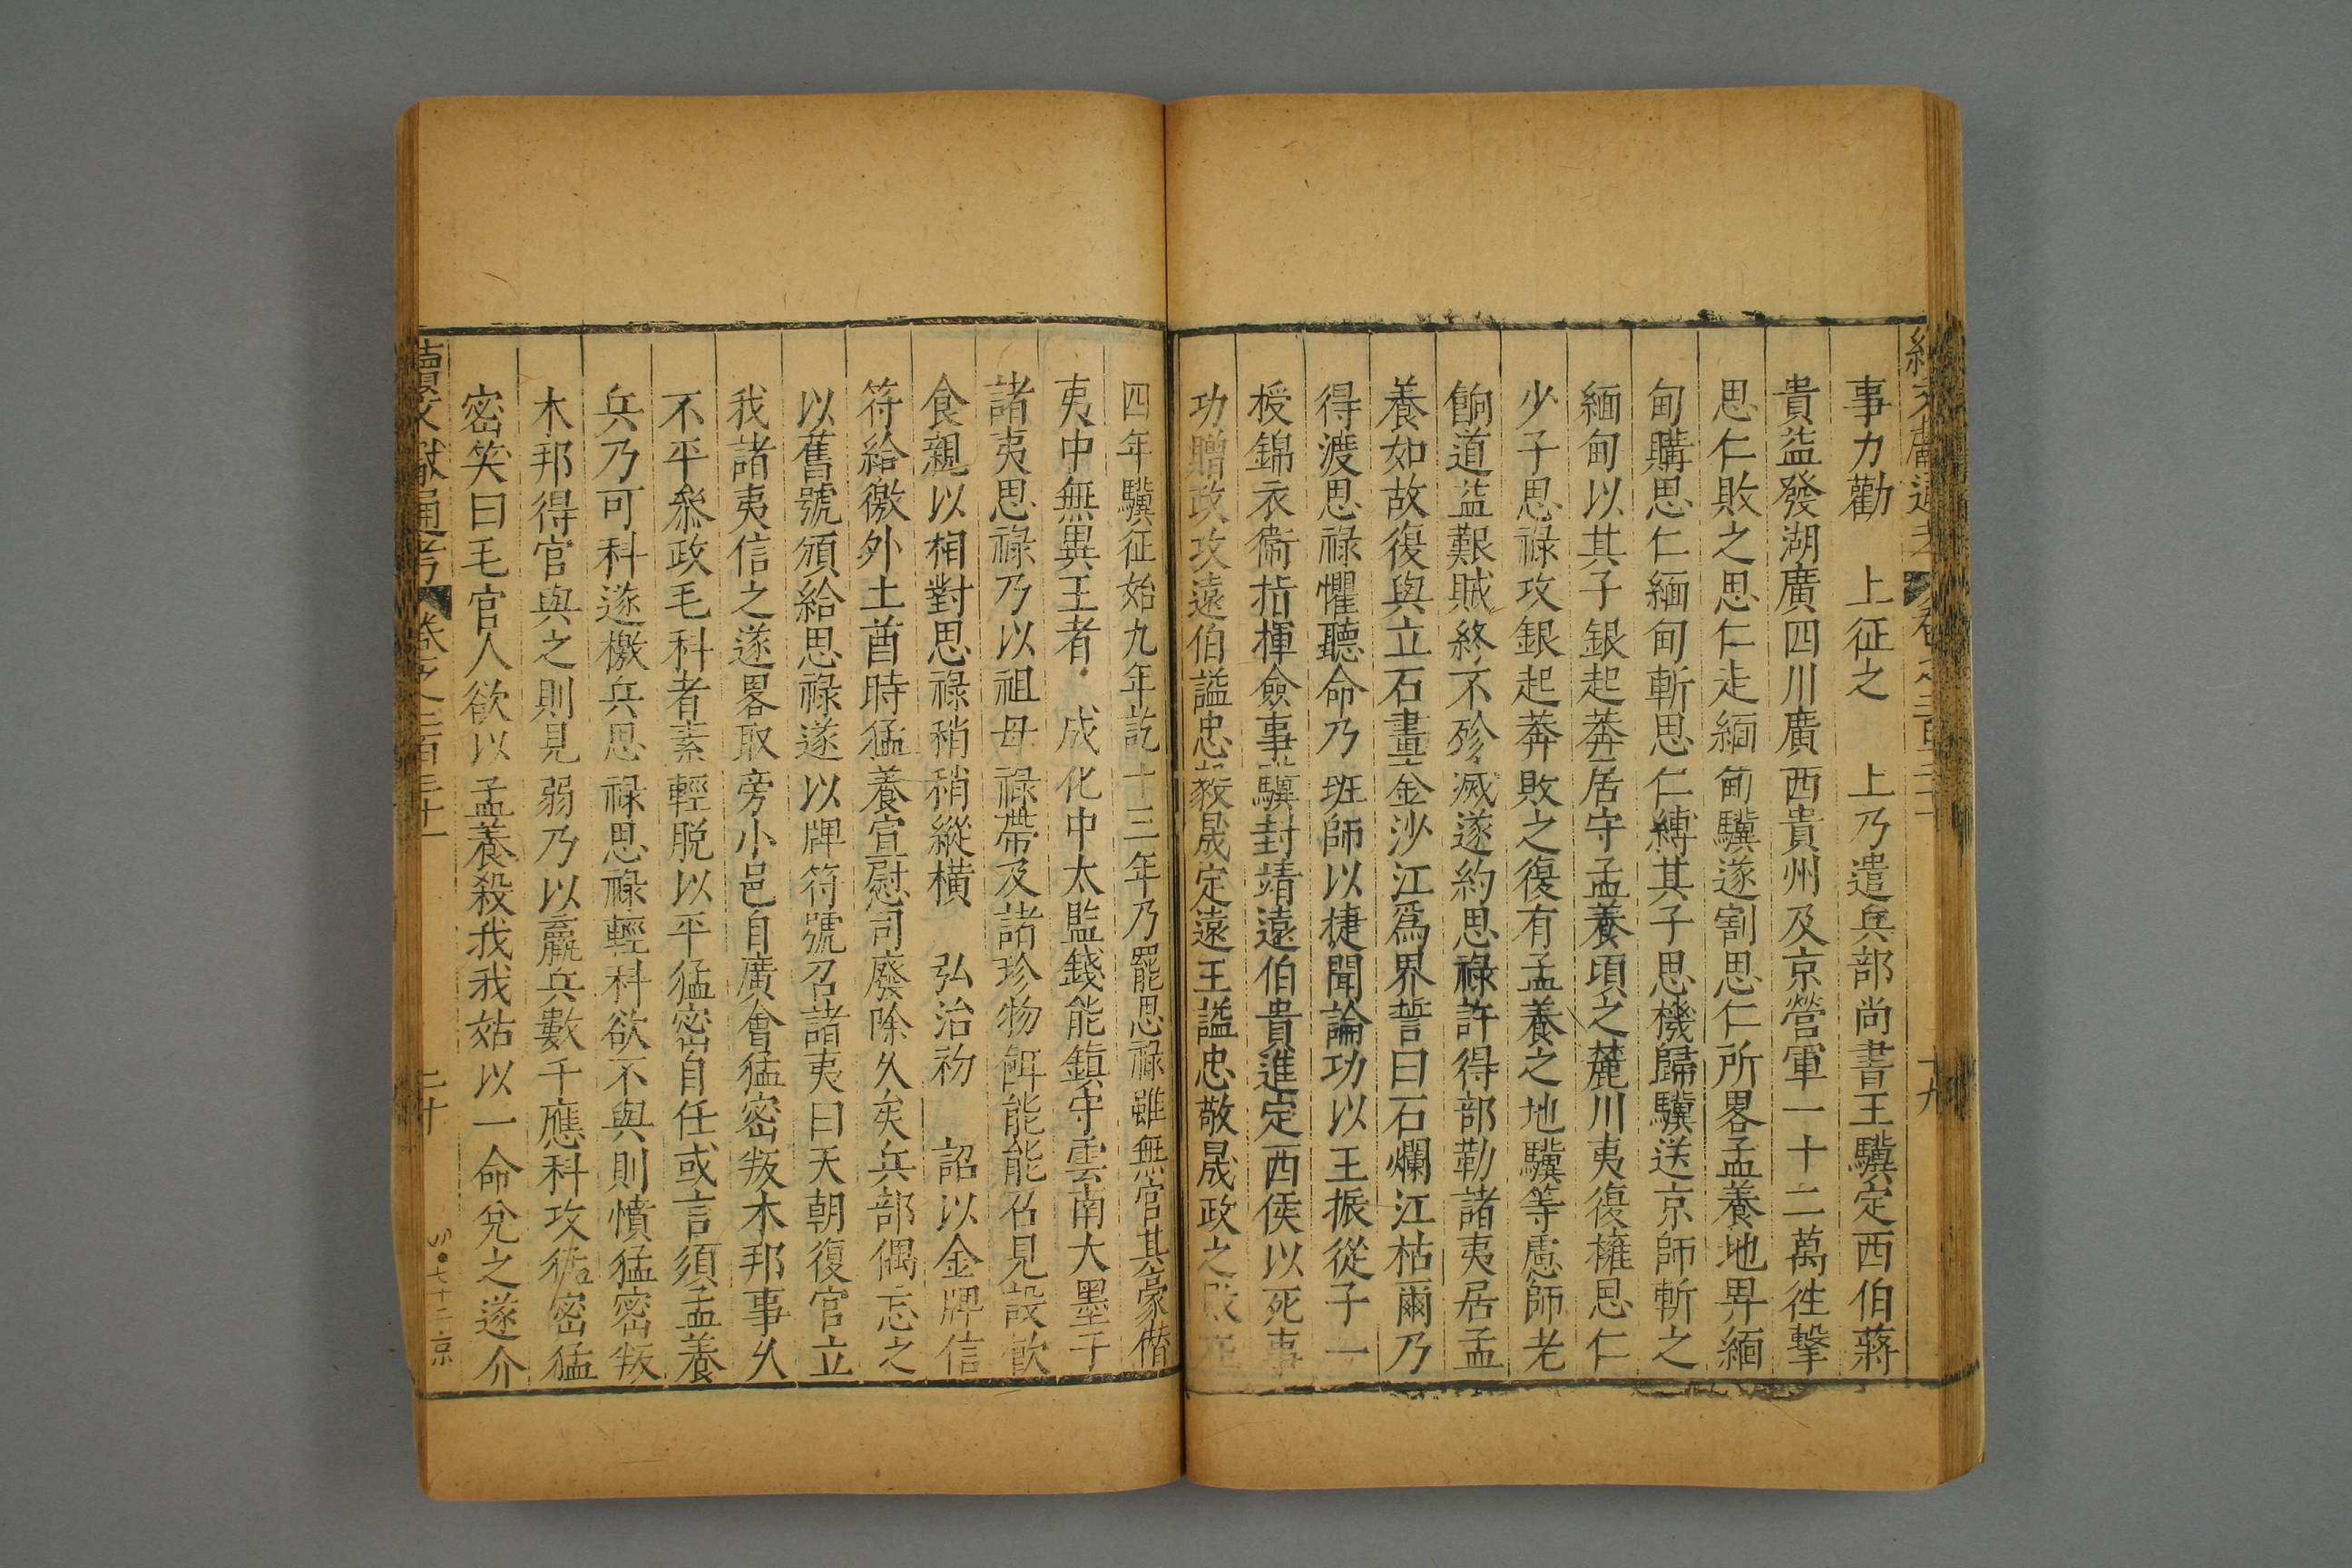 事力勸　上征之　上乃遣兵部尚書王驥定西伯蔣
貴益發湖廣四川廣西貴州及京營軍一十二萬徃擊
思仁敗之思仁走緬甸驥遂割思仁所畧孟養地畀緬
甸購思仁緬甸斬思仁縛其子思機歸驥送京師斬之
緬甸以其子銀起莾居守孟養頃之麓川夷復擁思仁
少子思祿攻銀起莾敗之復有孟養之地驥等慮師老
餉道益艱賊終不殄滅遂約思祿許得部勒諸夷居孟
養如故復與立石畫金沙江爲界誓曰石爛江枯爾乃
得渡思祿懼聽命乃班師以捷聞論功以王振從子一
授錦衣衞指揮僉事驥封靖遠伯貴進定西侯以死事
功贈政攻遠伯謚忠毅晟定遠王謚忠敬晟政之
四年驥征始九年訖十三年乃罷思祿雖無官其豪僣
夷中無異王者　成化中太監錢能鎮守雲南大墨于
諸夷思祿乃以祖母祿帶及諸珍物餌能能召見設飲
食親以相對思祿稍稍縱橫　弘治初　詔以金牌信
符給徼外土酋時猛養宣慰司廢除久矣兵部偶忘之
以舊號頒給思祿遂以牌符號召諸夷曰天朝復官立
我諸夷信之遂畧取旁小邑自廣會猛密叛木邦事久
不平叅政毛科者素輕脱以平猛密自任或言須孟養
兵乃可科遂檄兵思祿思祿輕科欲不與則憤猛密叛
木邦得官與之則見弱乃以羸兵數千應科攻猛密猛
密笑曰毛官人欲以孟養殺我我姑以一命兌之遂介
續文獻通考　卷之二百三十　二十